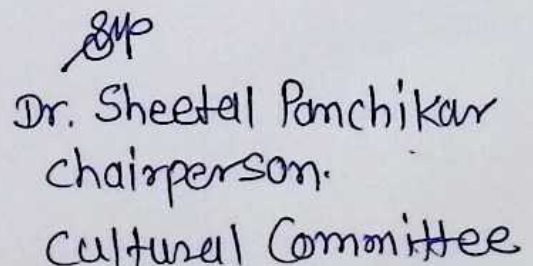 Dr. Sheetal Panchikar
Chairperson.
Cultural Committee